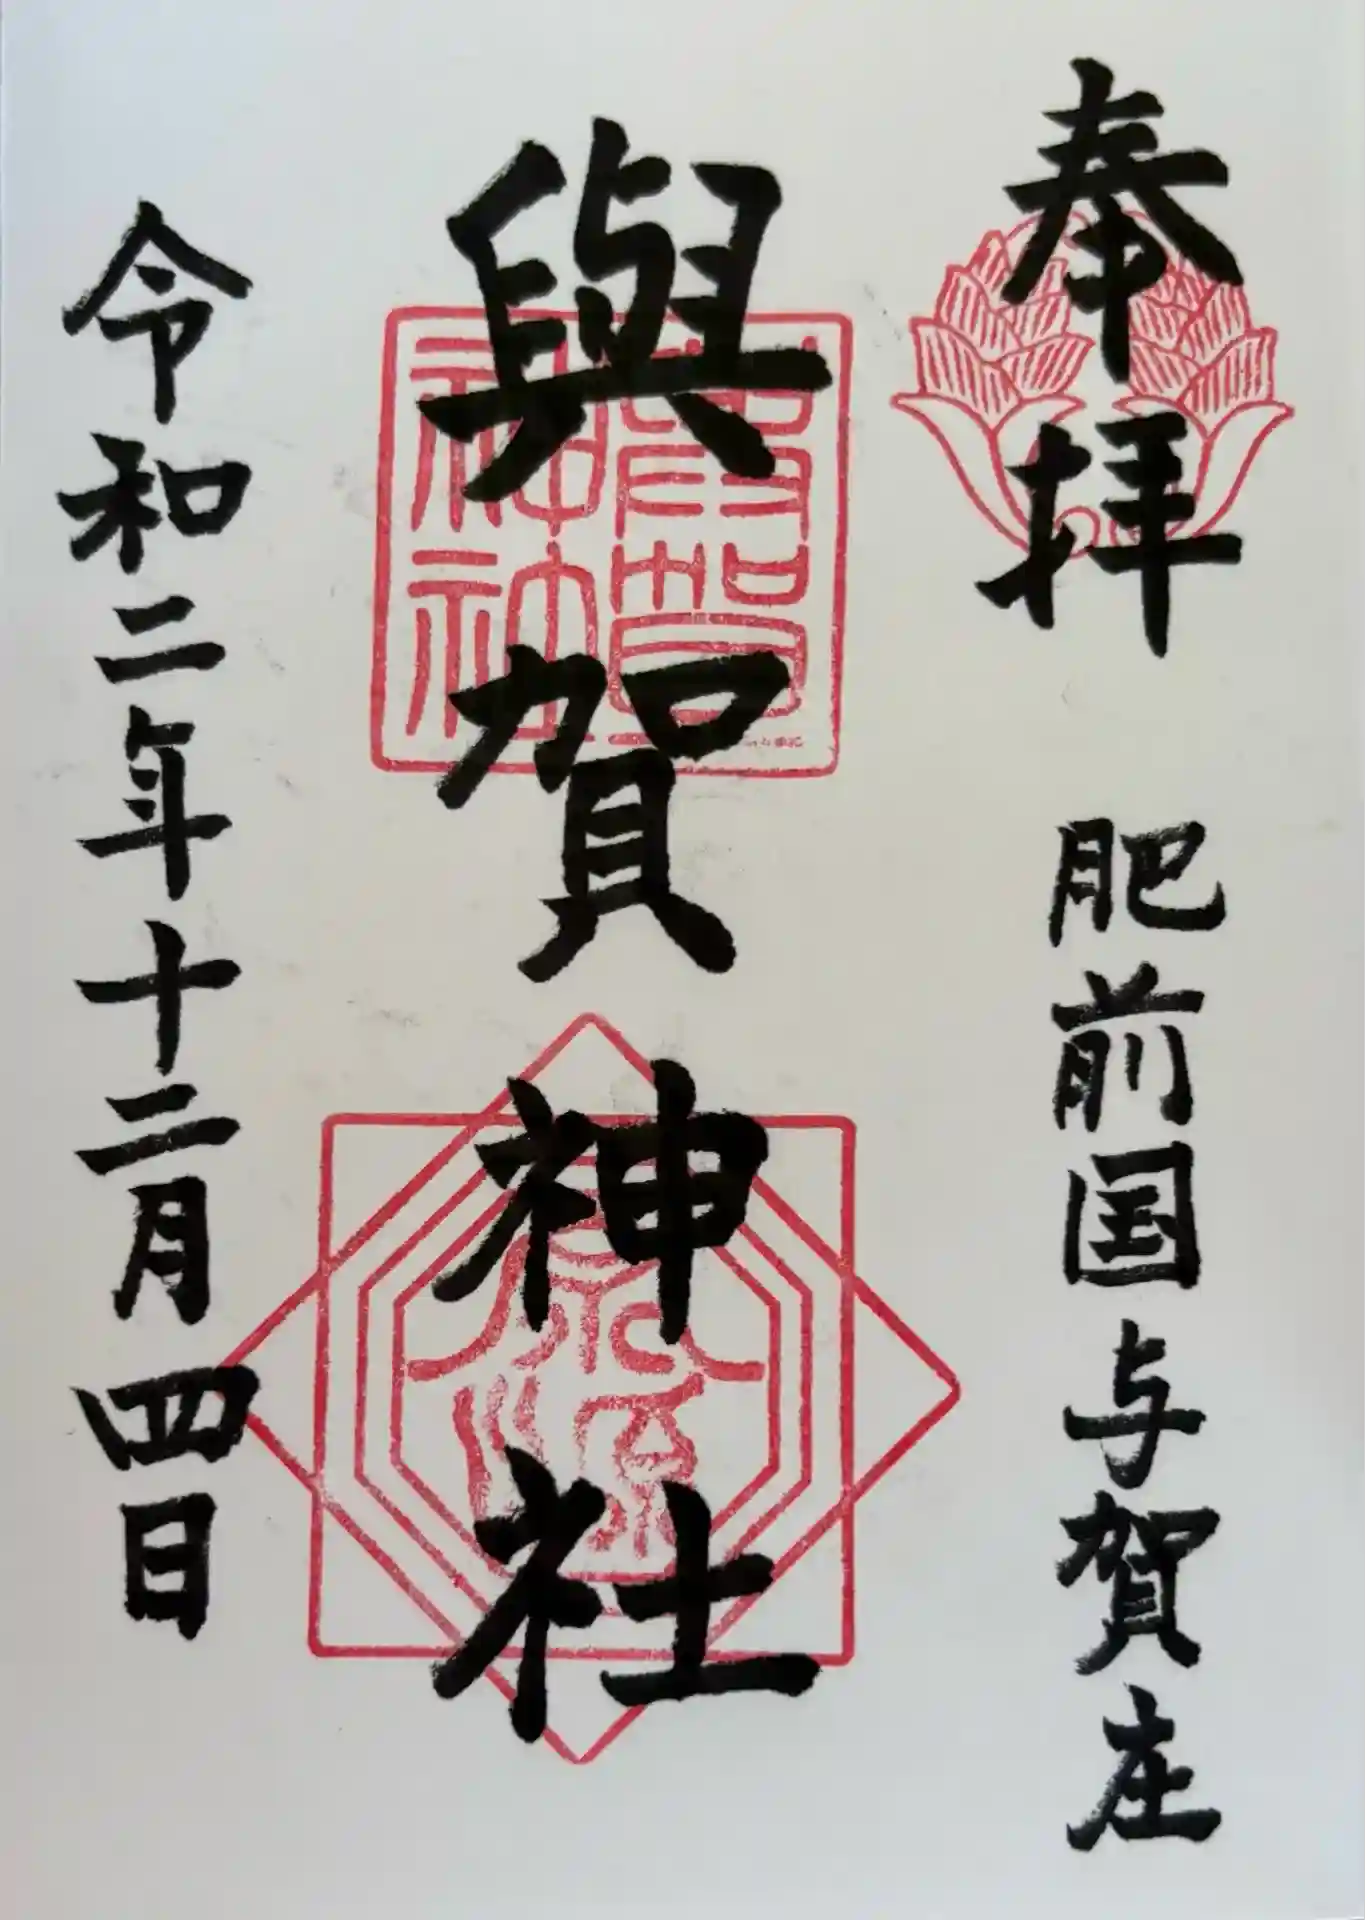 奉拝 肥前国与賀庄
與賀神社
令和二年十二月四日